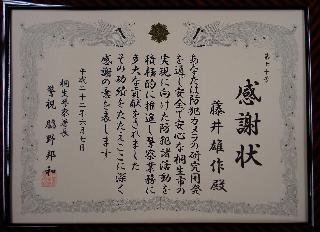 感謝状
藤井雄作殿
あなたは防犯カメラの研究開発
を通し安全で安心な桐生市の
実現に向けた防犯諸活動を
積極的に推進し警察業務に
多大な貢献をされました
その功績をたたえここに深く
感謝の意を表します
平成二十二年六月七日
桐生警察署長
警視 野邦和